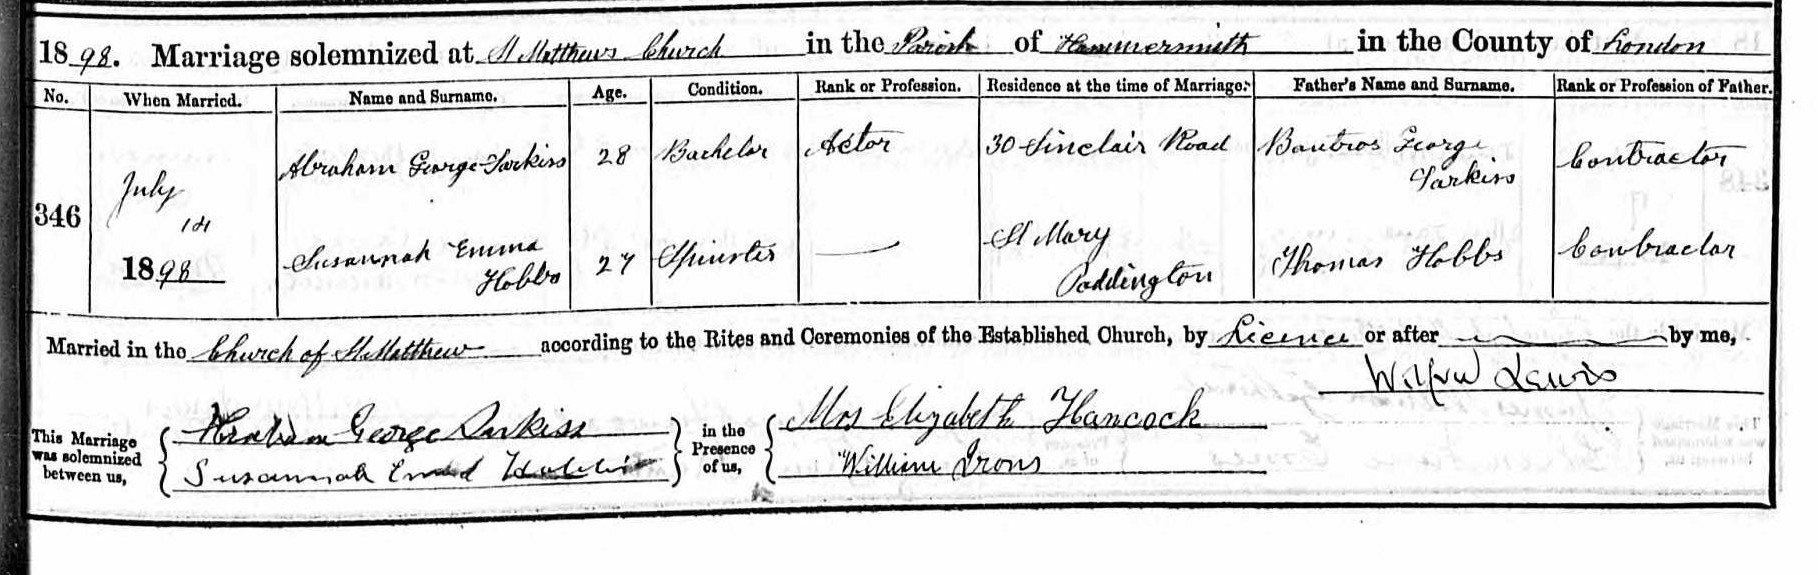 1898. Marriage solemnized at St Matthews Church in the Parish of Hammersmith in the County of London
No. When Married. Name and Surname. Age. Condition. Rank or Profession. Residence at the time of Marriage. Father's Name and Surname. Rank or Profession of Father.
346 July 14 1898
Abraham George Sarkiss 28 Bachelor Actor 30 Sinclair Road Boutros George Sarkiss Contractor
Susannah Emma Hobbs 27 Spinster — St Mary Paddington Thomas Hobbs Contractor
Married in the Church of St Matthew according to the Rites and Ceremonies of the Established Church, by Licence or after by me,
Wilfrid Lewis
This Marriage was solemnized between us, Abraham George Sarkiss in the Presence of us, Mrs Elizabeth Hancock
Susannah William Irons